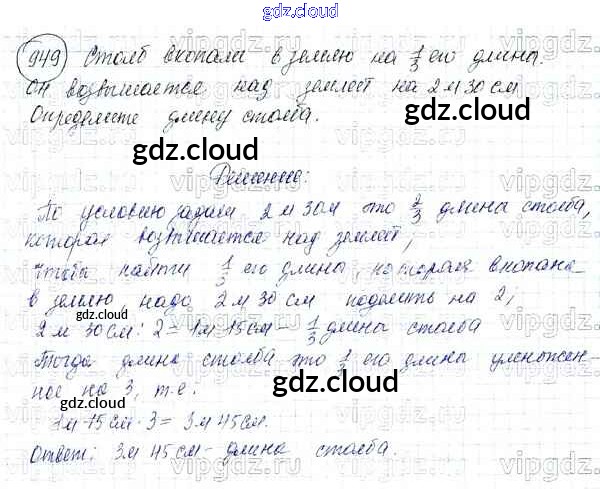 gdz.cloud
949 Столб вкопали в землю на 1/3 его длины.
Он возвышается над землей на 2 м 30 см
Определите длину столба.
gdz.cloud
gdz.cloud
Решение:
По условию задачи 2 м 30 м это 2/3 длины столба,
которая возвышается над землей,
Чтобы найти 1/3 его длины, которая вкопана
в землю, надо 2 м 30 см поделить на 2,
gdz.cloud
gdz.cloud
2 м 30 см : 2 = 1 м 15 см - 1/3 длины столба
Тогда длина столба это 1/3 его длины умножен-
ное на 3, т.е.
gdz.cloud
gdz.cloud
1 м 15 см · 3 = 3 м 45 см.
Ответ: 3 м 45 см - длина столба.
gdz.cloud